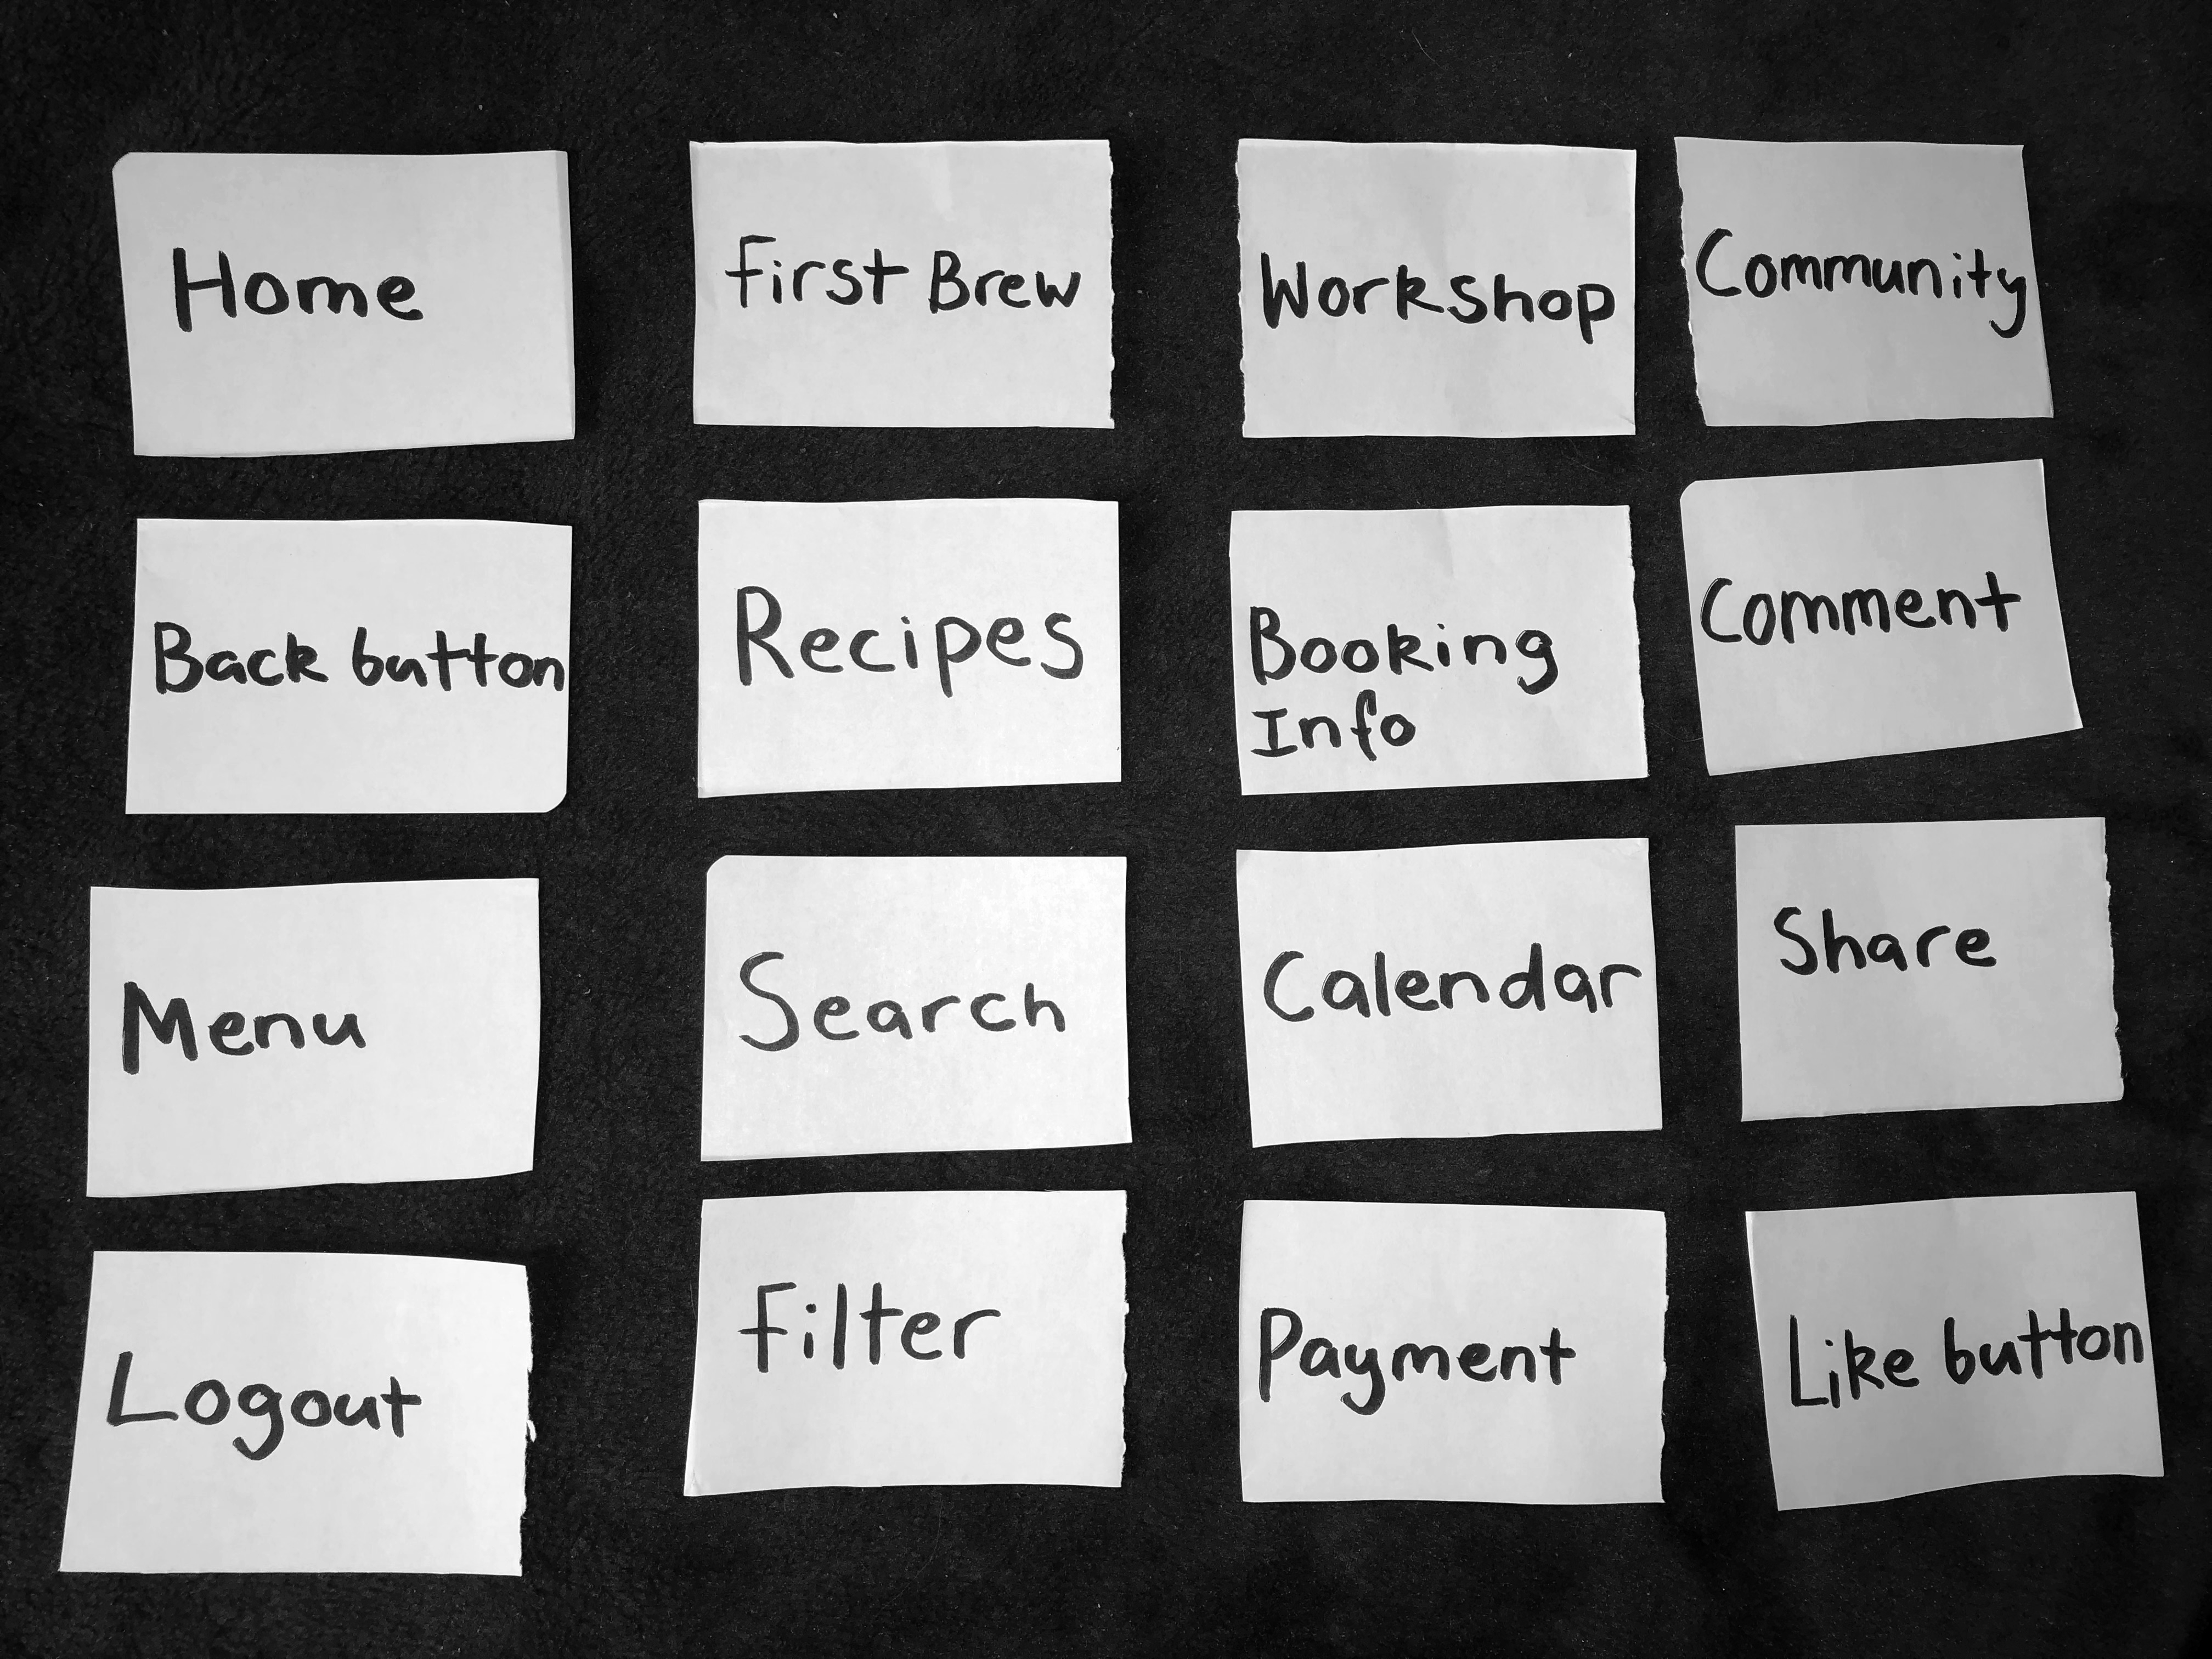 Home
First Brew
Workshop
Community
Back button
Recipes
Booking
Info
Comment
Menu
Search
Calendar
Share
Logout
Filter
Payment
Like button